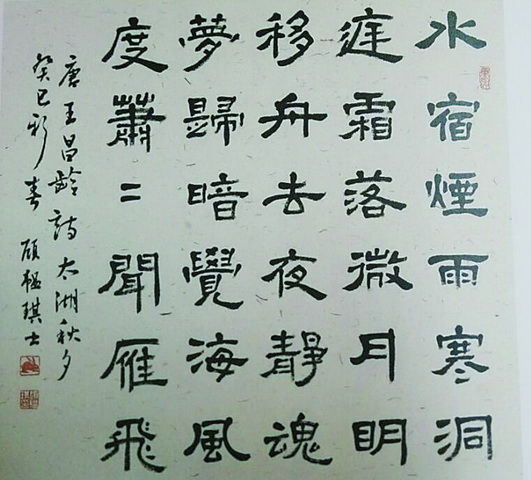 水宿煙雨寒洞
庭霜落微月明
移舟去夜靜魂
夢歸暗覺海風
度蕭二聞雁飛
唐王昌齡詩太湖秋夕
癸巳新春